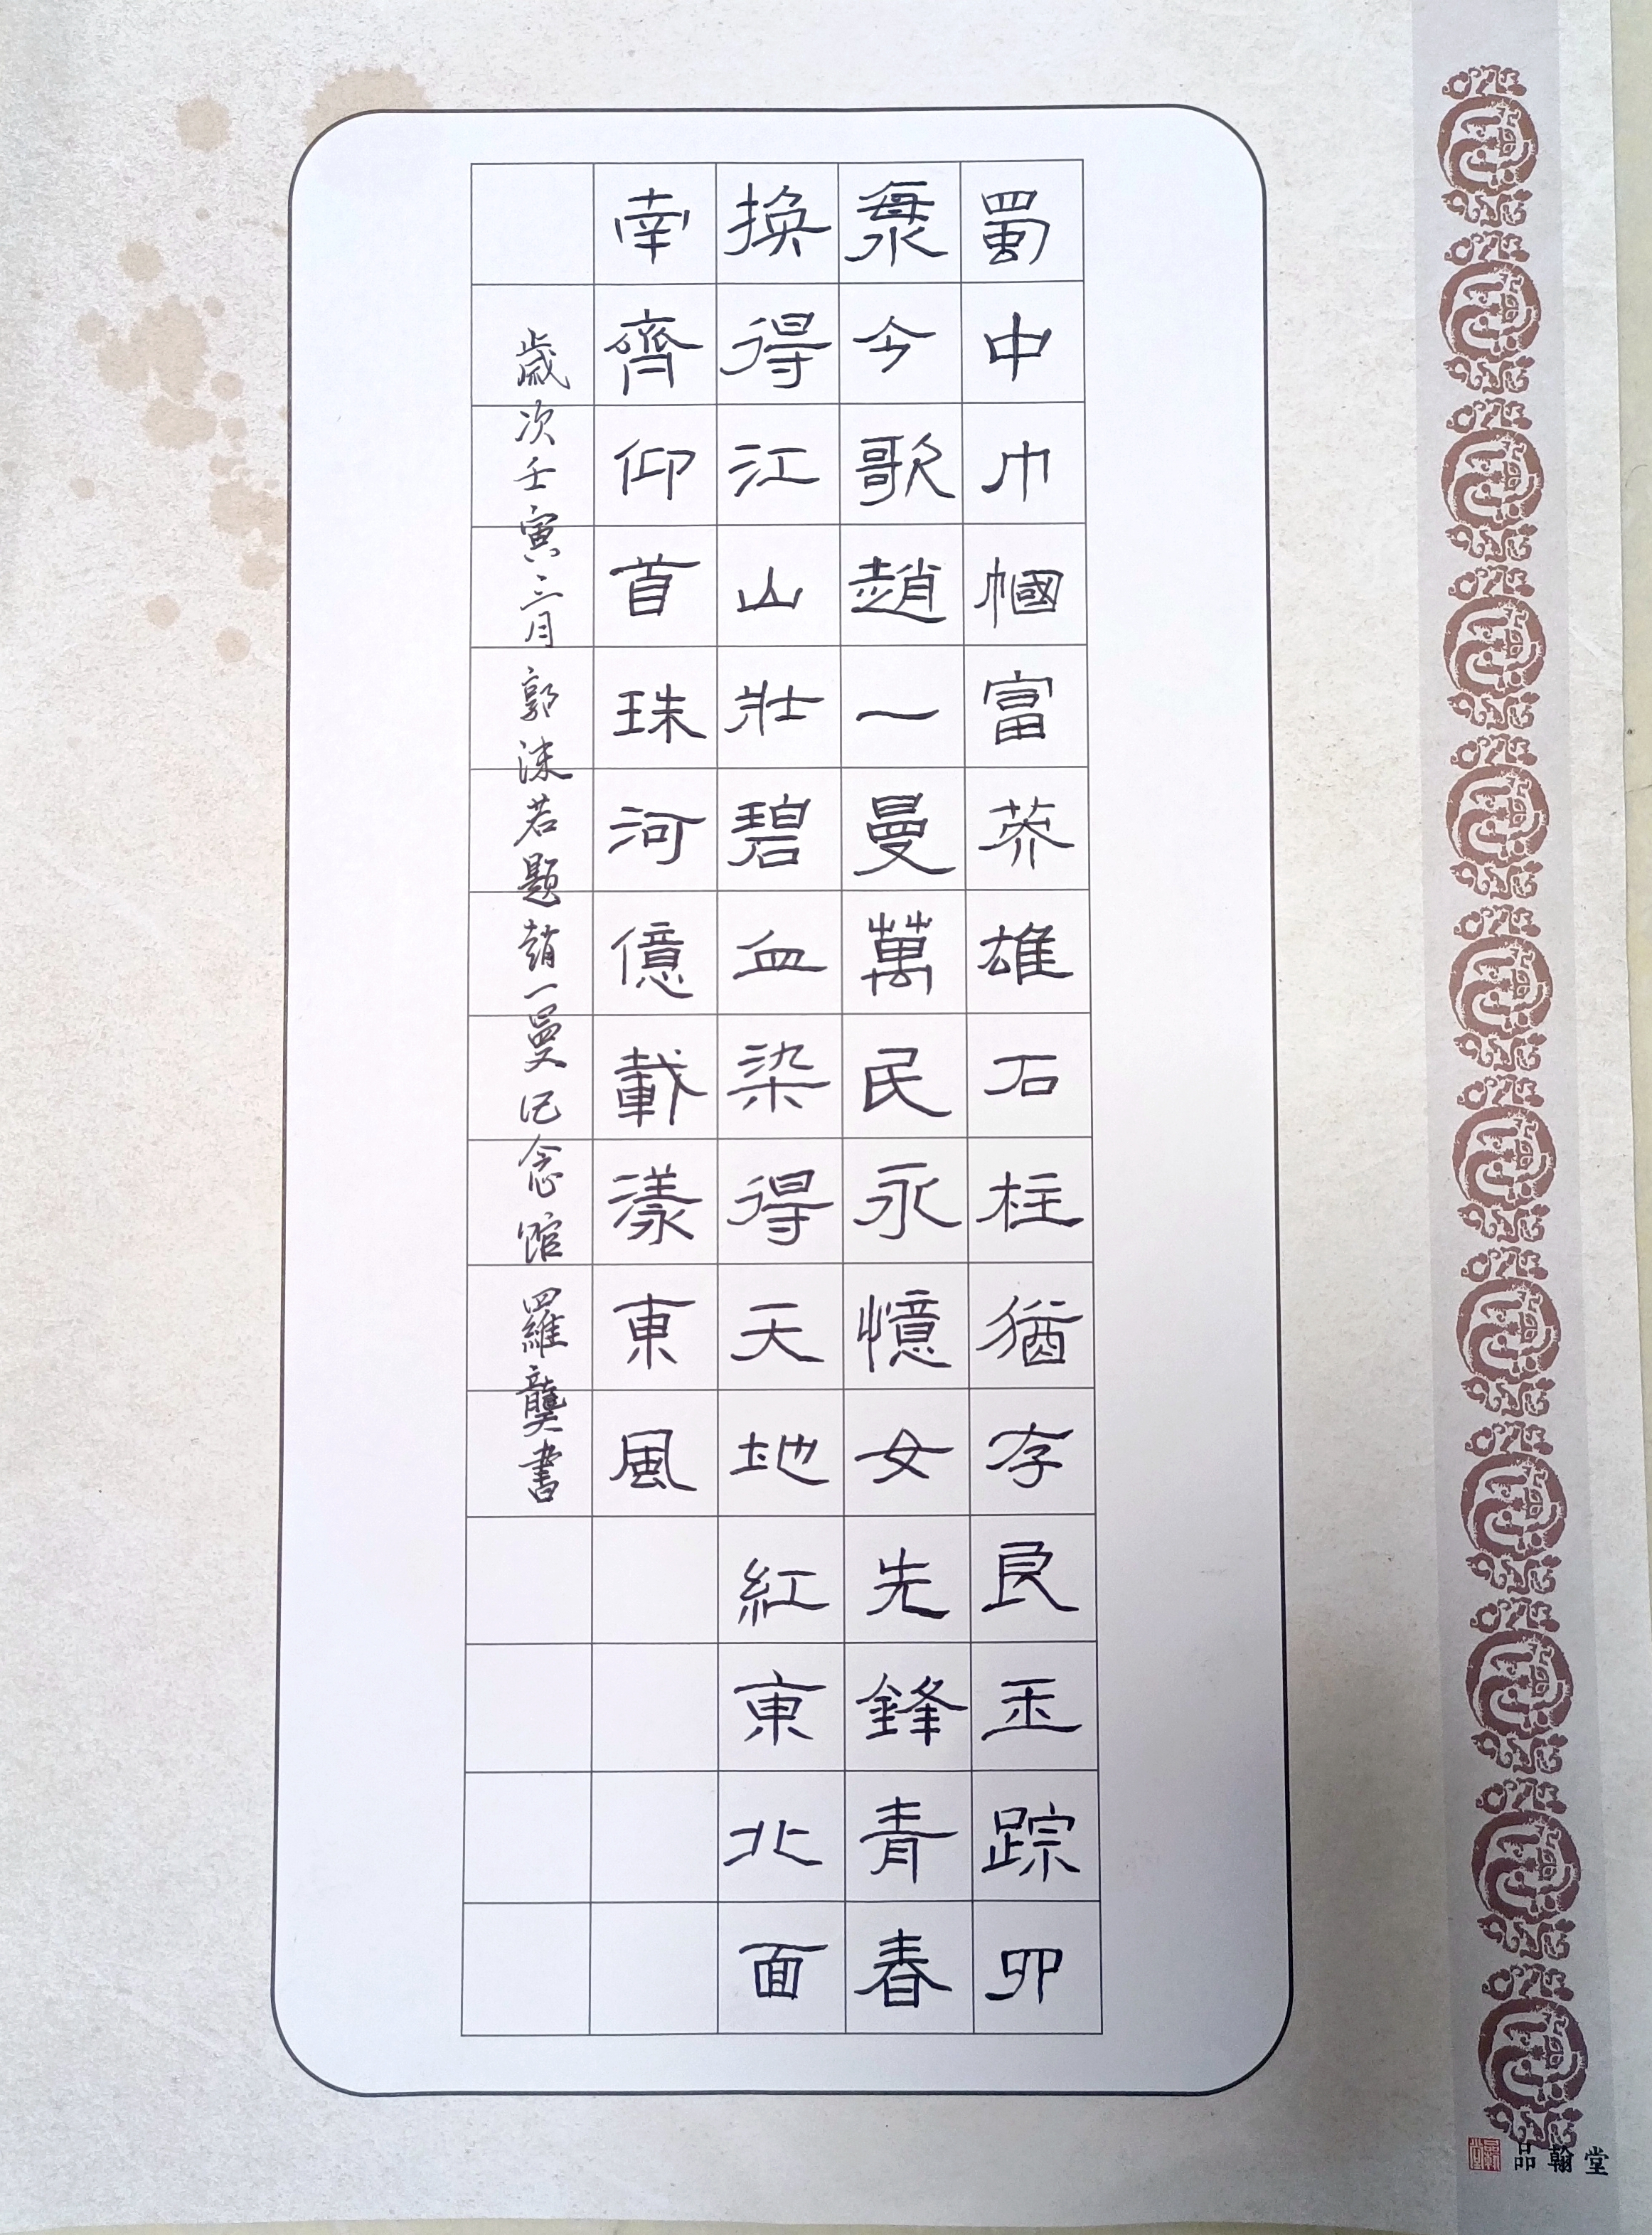 蜀中巾幗富英雄石柱猶存良玉踪四
海今歌趙一曼萬民永憶女先鋒青春
換得江山壯碧血染得天地紅東北面
南齊仰首珠河億載漾東風
歲次壬寅三月郭沫若題趙一曼记念馆羅龔書
品翰堂